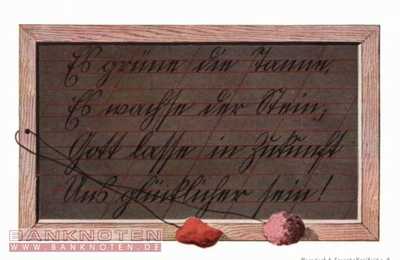 Es grüne die Tanne,
Es wachse der Stein,
Gott lasse in Zukunft
Uns glücklicher sein!
BANKNOTEN
WWW.BANKNOTEN.DE